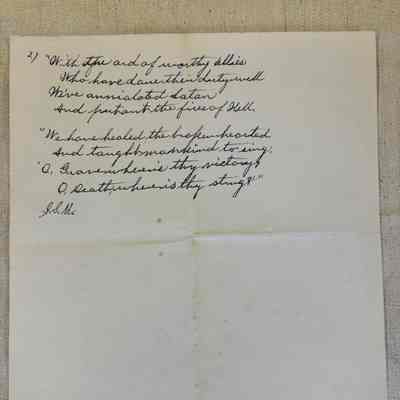 2) "With the aid of worthy allies
Who have done their duty well
We've anniolated Satan
And put out the fires of Hell.
"We have healed the broken hearted
And taught mankind to sing,
'O, Grave where is thy victory?
O, Death, where is thy sting?'"